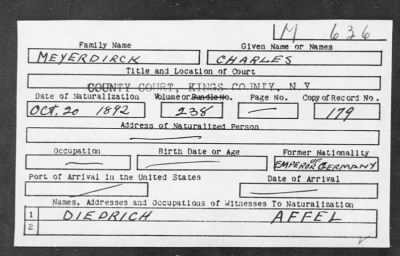 M 636
Family Name Given Name or Names
MEYERDIRCK CHARLES
Title and Location of Court
COUNTY COURT, KINGS COUNTY, N.Y.
Date of Naturalization Volume or Bundle No. Page No. Copy of Record No.
OCT, 20 1892 238 — 179
Address of Naturalized Person
Occupation Birth Date or Age Former Nationality
EMPEROR OF GERMANY
Port of Arrival in the United States Date of Arrival
Names, Addresses and Occupations of Witnesses To Naturalization
1 DIEDRICH AFFEL
2